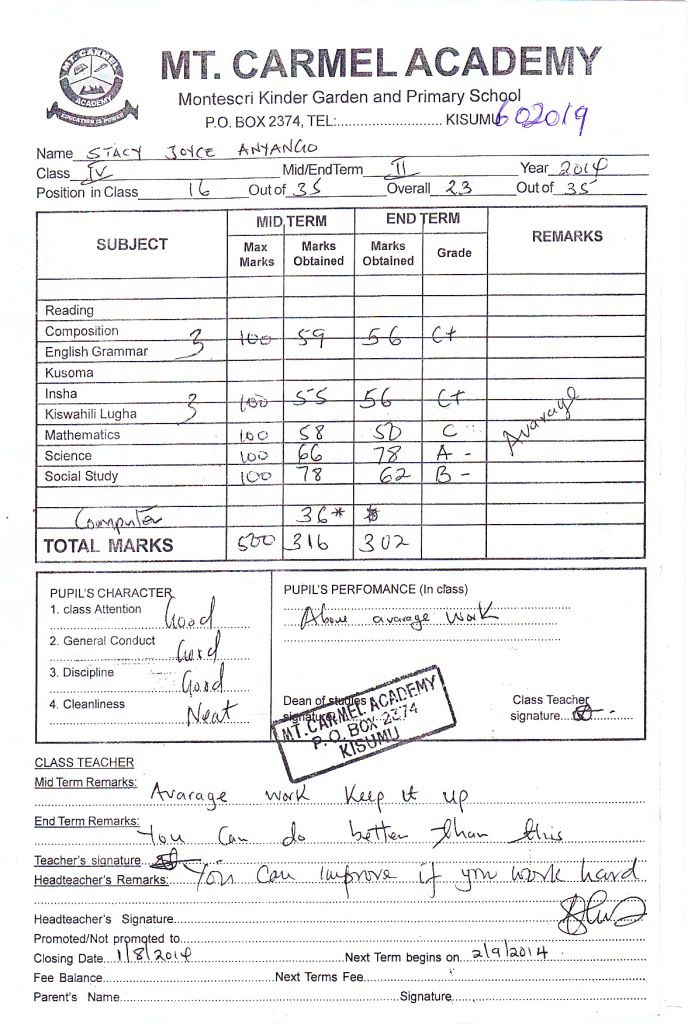 MT. CARMEL ACADEMY
MT. CARMEL
ACADEMY
EDUCATION IS POWER
Montescri Kinder Garden and Primary School
P.O. BOX 2374, TEL:............................ KISUMU 602019
Name STACY JOYCE ANYANGO
Class IV Mid/EndTerm II Year 2014
Position in Class 16 Out of 35 Overall 23 Out of 35
SUBJECT MID TERM END TERM REMARKS
Max Marks Marks Obtained Marks Obtained Grade
Reading
Composition
English Grammar 3 100 59 56 C+
Kusoma
Insha
Kiswahili Lugha 3 100 55 56 C+
Mathematics 100 58 50 C
Science 100 66 78 A-
Social Study 100 78 62 B-
Avarage
Computer 36*
TOTAL MARKS 500 316 302
PUPIL'S CHARACTER
1. class Attention Good
2. General Conduct Good
3. Discipline Good
4. Cleanliness Neat
PUPIL'S PERFOMANCE (In class)
Above avarage work
Dean of studies
signature
MT. CARMEL ACADEMY
P.O. BOX 2374
KISUMU
Class Teacher
signature
CLASS TEACHER
Mid Term Remarks: Avarage work Keep it up
End Term Remarks: You Can do better than this
Teacher's signature
Headteacher's Remarks: You Can improve if you work hard
Headteacher's Signature
Promoted/Not promoted to
Closing Date 1/8/2014 Next Term begins on 2/9/2014
Fee Balance Next Terms Fee
Parent's Name Signature